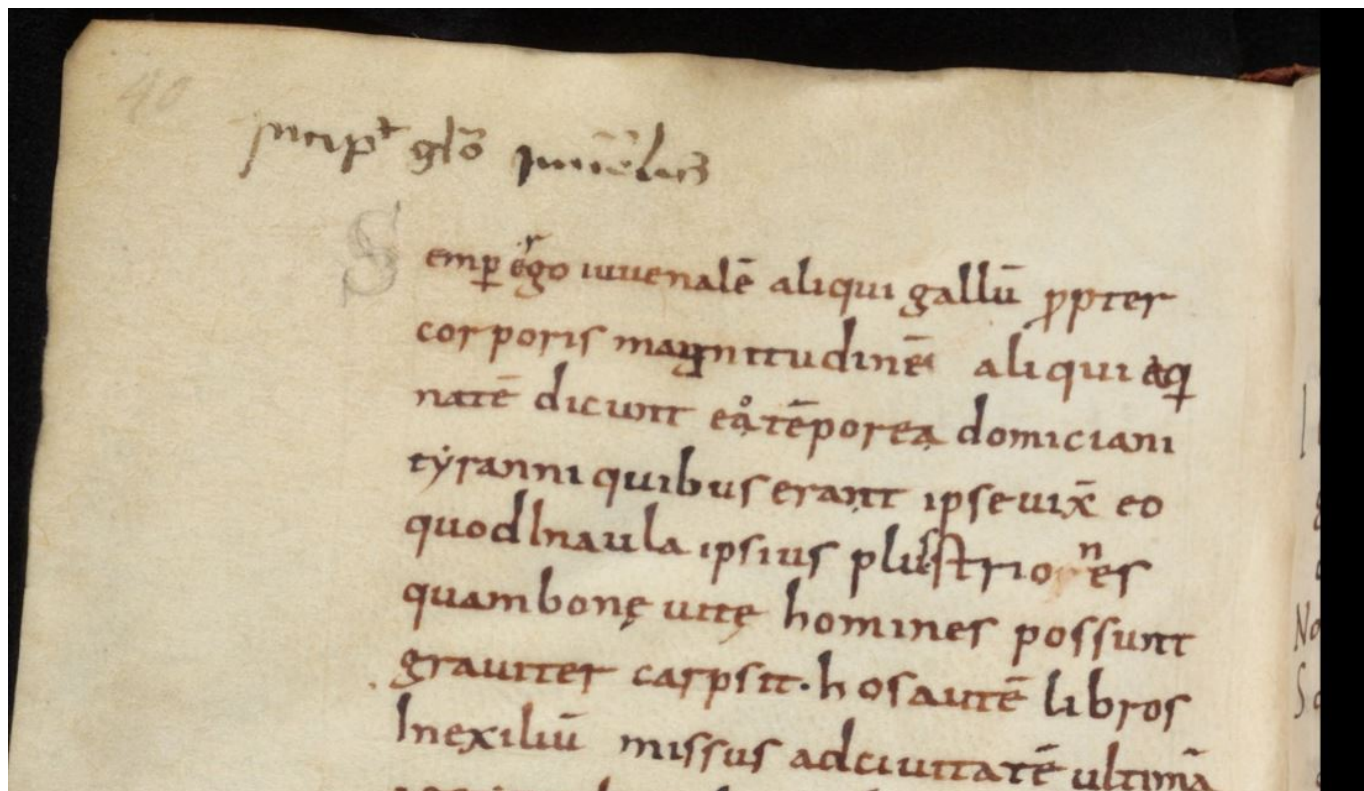 40
Incip̄t glō iuuēlis
S emꝑ ergo iuuenalē aliqui gallū ꝓpter
corporis magnitudinē aliqui aq
natē dicunt eo tēpore domiciani
tyranni quibus erant ipse uix̄ eo
quod Inaula ipsius plus striones
quam bonę uitę homines possunt
grauiter carpsit · hos autē libros
Inexiliū missus adciuitatē ultimā